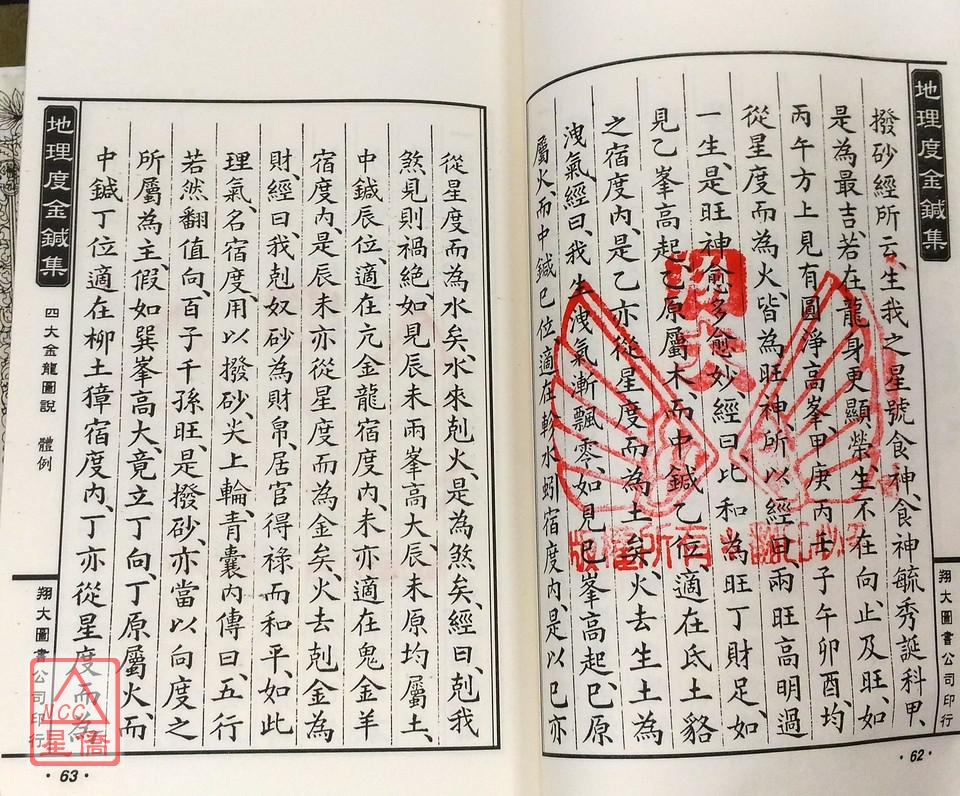 地理度金鍼集
撥砂經所云、生我之星號食神、食神毓秀誕科甲、
是為最吉、若在龍身更顯榮、生不在向止及旺、如
丙午方上見有圓淨高峯、甲庚丙壬子午卯酉、均
從星度而為火、皆為旺神、所以經曰、兩旺高明過
一生、是旺神愈多愈妙、經曰、比和為旺丁財足、如
見乙峯高起、乙原屬木、而中鍼乙位、適在氐土貉
之宿度內、是乙亦從星度而為土矣、火去生土為
洩氣、經曰、我生洩氣漸飄零、如見巳峯高起、巳原
屬火、而中鍼巳位適在軫水蚓宿度內、是以巳亦
翔大圖書公司印行
·62·
翔大
版權所有 翻印必究
地理度金鍼集
四大金龍圖說 體例
從星度而為水矣、水來剋火、是為煞矣、經曰、剋我
煞見則禍絕、如見辰未兩峯高大、辰未原均屬土、
中鍼辰位、適在亢金龍宿度內、未亦適在鬼金羊
宿度內、是辰未亦從星度而為金矣、火去剋金為
財、經曰、我剋奴砂為財帛、居官得祿而和平、如此
理氣、名宿度、用以撥砂、尖上輪、青囊內傳曰、五行
若然翻值向、百子千孫旺、是撥砂、亦當以向度之
所屬為主、假如巽峯高大、竟立丁向、丁原屬火、而
中鍼丁位適在柳土獐宿度內、丁亦從星度而為
翔大圖書公司印行
·63·
NCC
星僑